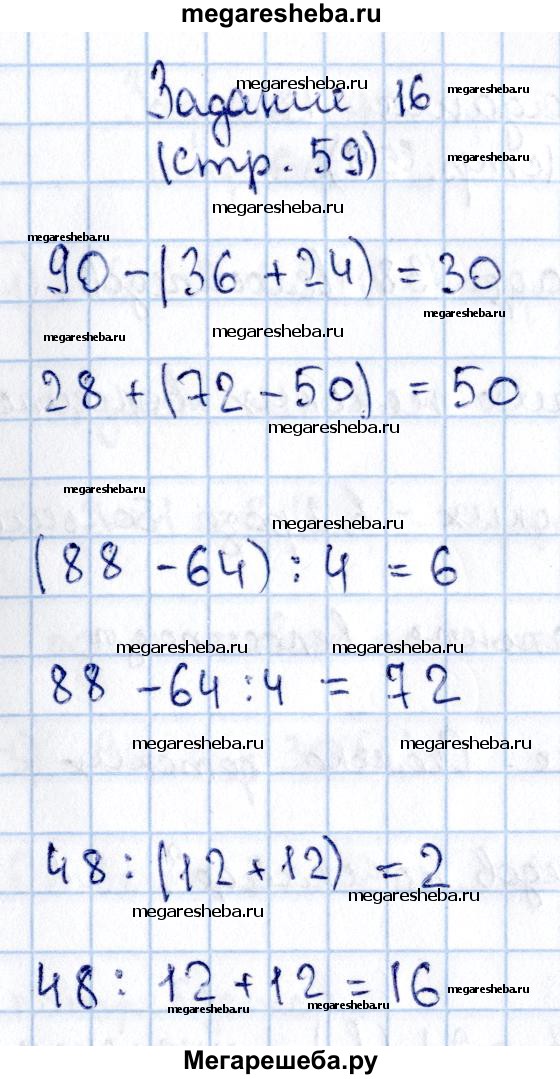 megaresheba.ru
Задание 16
megaresheba.ru
megaresheba.ru
(стр. 59)
megaresheba.ru
megaresheba.ru
megaresheba.ru
90 - (36 + 24) = 30
megaresheba.ru
megaresheba.ru
megaresheba.ru
28 + (72 - 50) = 50
megaresheba.ru
megaresheba.ru
megaresheba.ru
(88 - 64) : 4 = 6
megaresheba.ru
megaresheba.ru
88 - 64 : 4 = 72
megaresheba.ru
megaresheba.ru
48 : (12 + 12) = 2
megaresheba.ru
megaresheba.ru
48 : 12 + 12 = 16
megaresheba.ru
megaresheba.ru
megaresheba.ru
Мегарешеба.ру